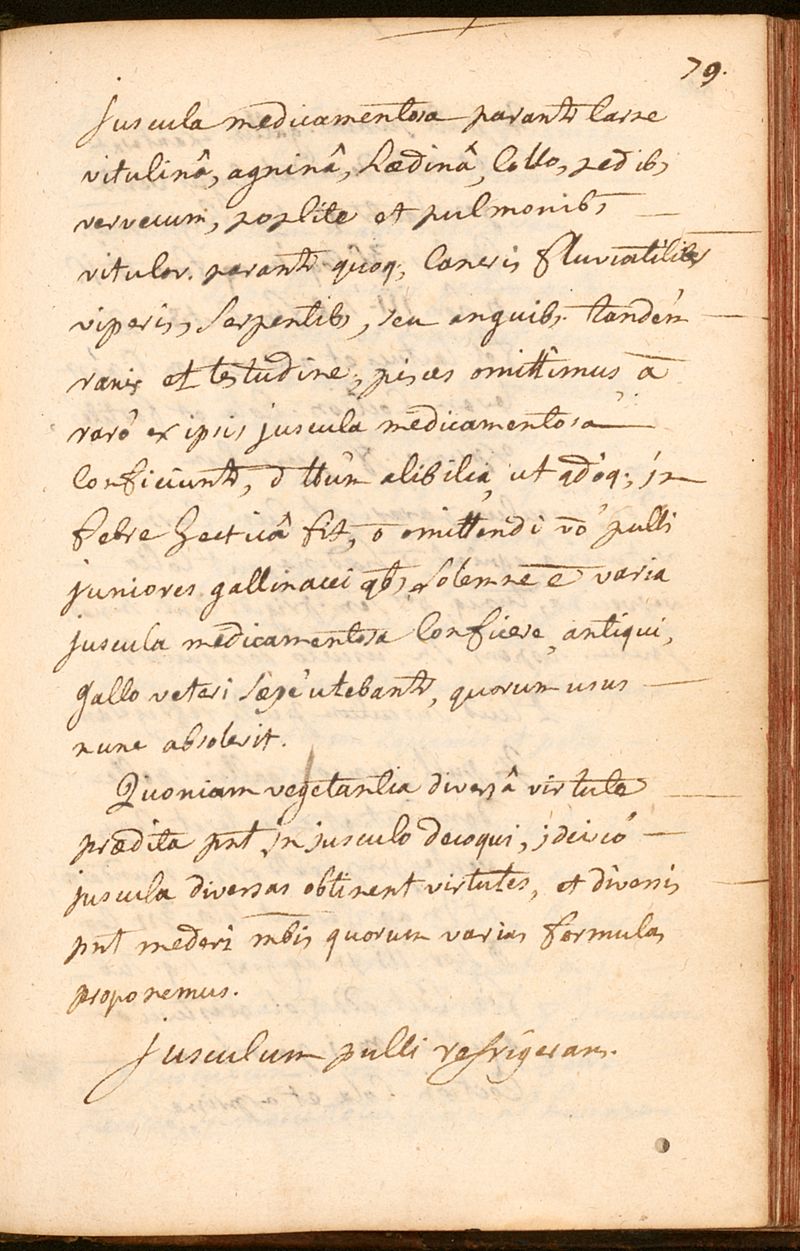 79.
Juscula medicamentosa parantr carne
vitulinâ, agninâ, hædinâ, collo, pedib,
vervecum, poplite et pulmonib,
vitulor. parantr quoq; cancris fluviatilib,
viperis, serpentib, seu anguib. tandem
ranis et testudine, pisces omittimus
raro ex ipsis juscula medicamentosa
conficiuntr, alibilia, ut qdoq; in
febre hecticâ fit, omittendi vo pulli
juniores gallinacei qb, solemne ē varia
juscula medicamentosa conficere, antiqui,
gallo veteri sæpè utebantr, quorum usus
nunc absolevit.
Quoniam vegetantia diversâ virtute
prædita pnt in jusculo decoqui, idcircò
juscula diversas obtinent virtutes, et diversis
pnt mederi mbis quorum varias formulas
proponemus.
Jusculum pulli refrigerans.